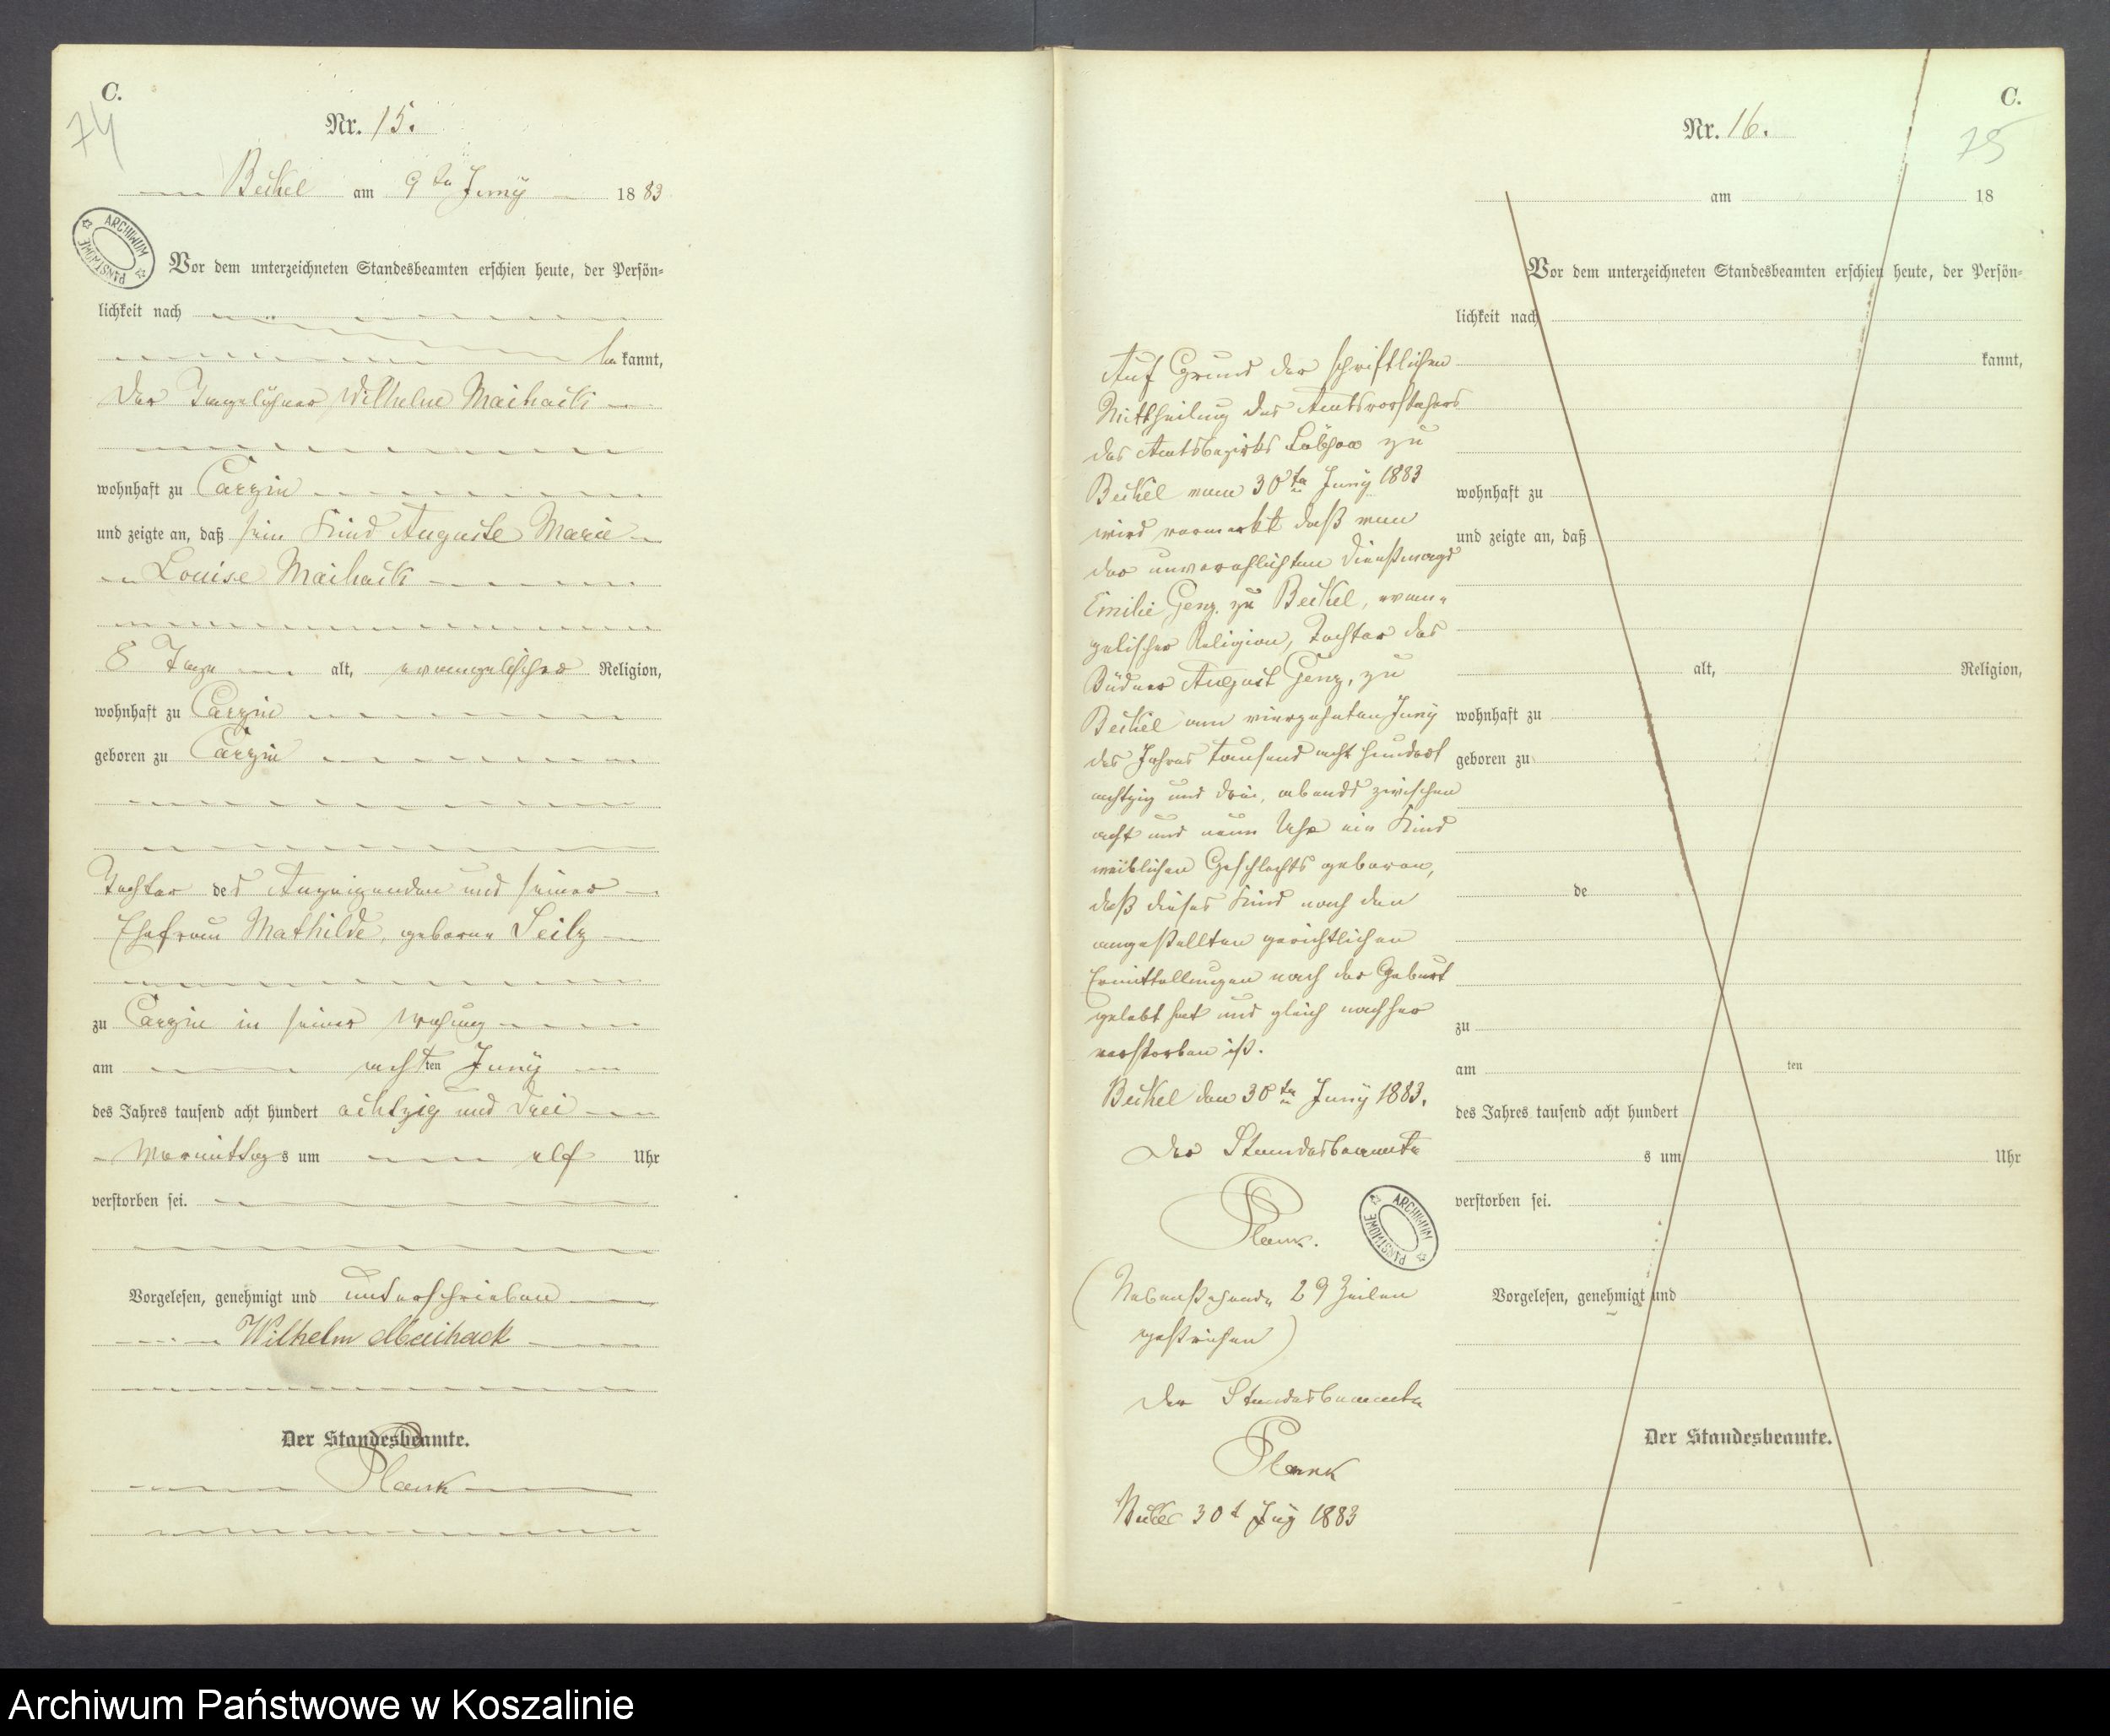 C.
74
Nr. 15.
Beckel am 9ten Juny 1883
ARCHIWUM PAŃSTWOWE
Vor dem unterzeichneten Standesbeamten erschien heute, der Persön-
lichkeit nach
bekannt,
der Tagelöhner Wilhelm Maihack
wohnhaft zu Carzin
und zeigte an, daß sein Kind Auguste Marie
Louise Maihack
8 Tage alt, evangelischer Religion,
wohnhaft zu Carzin
geboren zu Carzin
Tochter des Anzeigenden und seiner
Ehefrau Mathilde, geborene
zu Carzin in seiner Wohung
am achten Juny
des Jahres tausend acht hundert achtzig und drei
Vormittags um elf Uhr
verstorben sei.
Vorgelesen, genehmigt und unterschrieben
Wilhelm Maihack
Der Standesbeamte.
Plank
C.
75
Nr. 16.
am 18
Vor dem unterzeichneten Standesbeamten erschien heute, der Persön-
lichkeit nach
kannt,
wohnhaft zu
und zeigte an, daß
alt, Religion,
wohnhaft zu
geboren zu
de
zu
am ten
des Jahres tausend acht hundert
s um Uhr
verstorben sei.
Vorgelesen, genehmigt und
Der Standesbeamte.
Auf Grund der schriftlichen
Mittheilung des Amtsvorstehers
des Amtsbezirks Lübzow zu
Beckel vom 30ten Juny 1883
wird vermerkt daß von
der unverehlichten Dienstmagd
Emilie Genz zu Beckel, evan-
gelischer Religion, Tochter des
Büdner August Genz, zu
Beckel am vierzehnten Juny
des Jahres tausend acht hundert
achtzig und drei, abends zwischen
acht und neun Uhr ein Kind
weiblichen Geschlechts geboren,
daß dieses Kind nach den
angestellten gerichtlichen
Ermittellungen nach der Geburt
gelebt hat und gleich nachher
verstorben ist.
Beckel den 30ten Juny 1883.
Der Standesbeamte
Plank.
ARCHIWUM PAŃSTWOWE
(Nebenstehende 29 Zeilen
gestrichen)
Der Standesbeamte
Plank
30t 1883
Archiwum Państwowe w Koszalinie